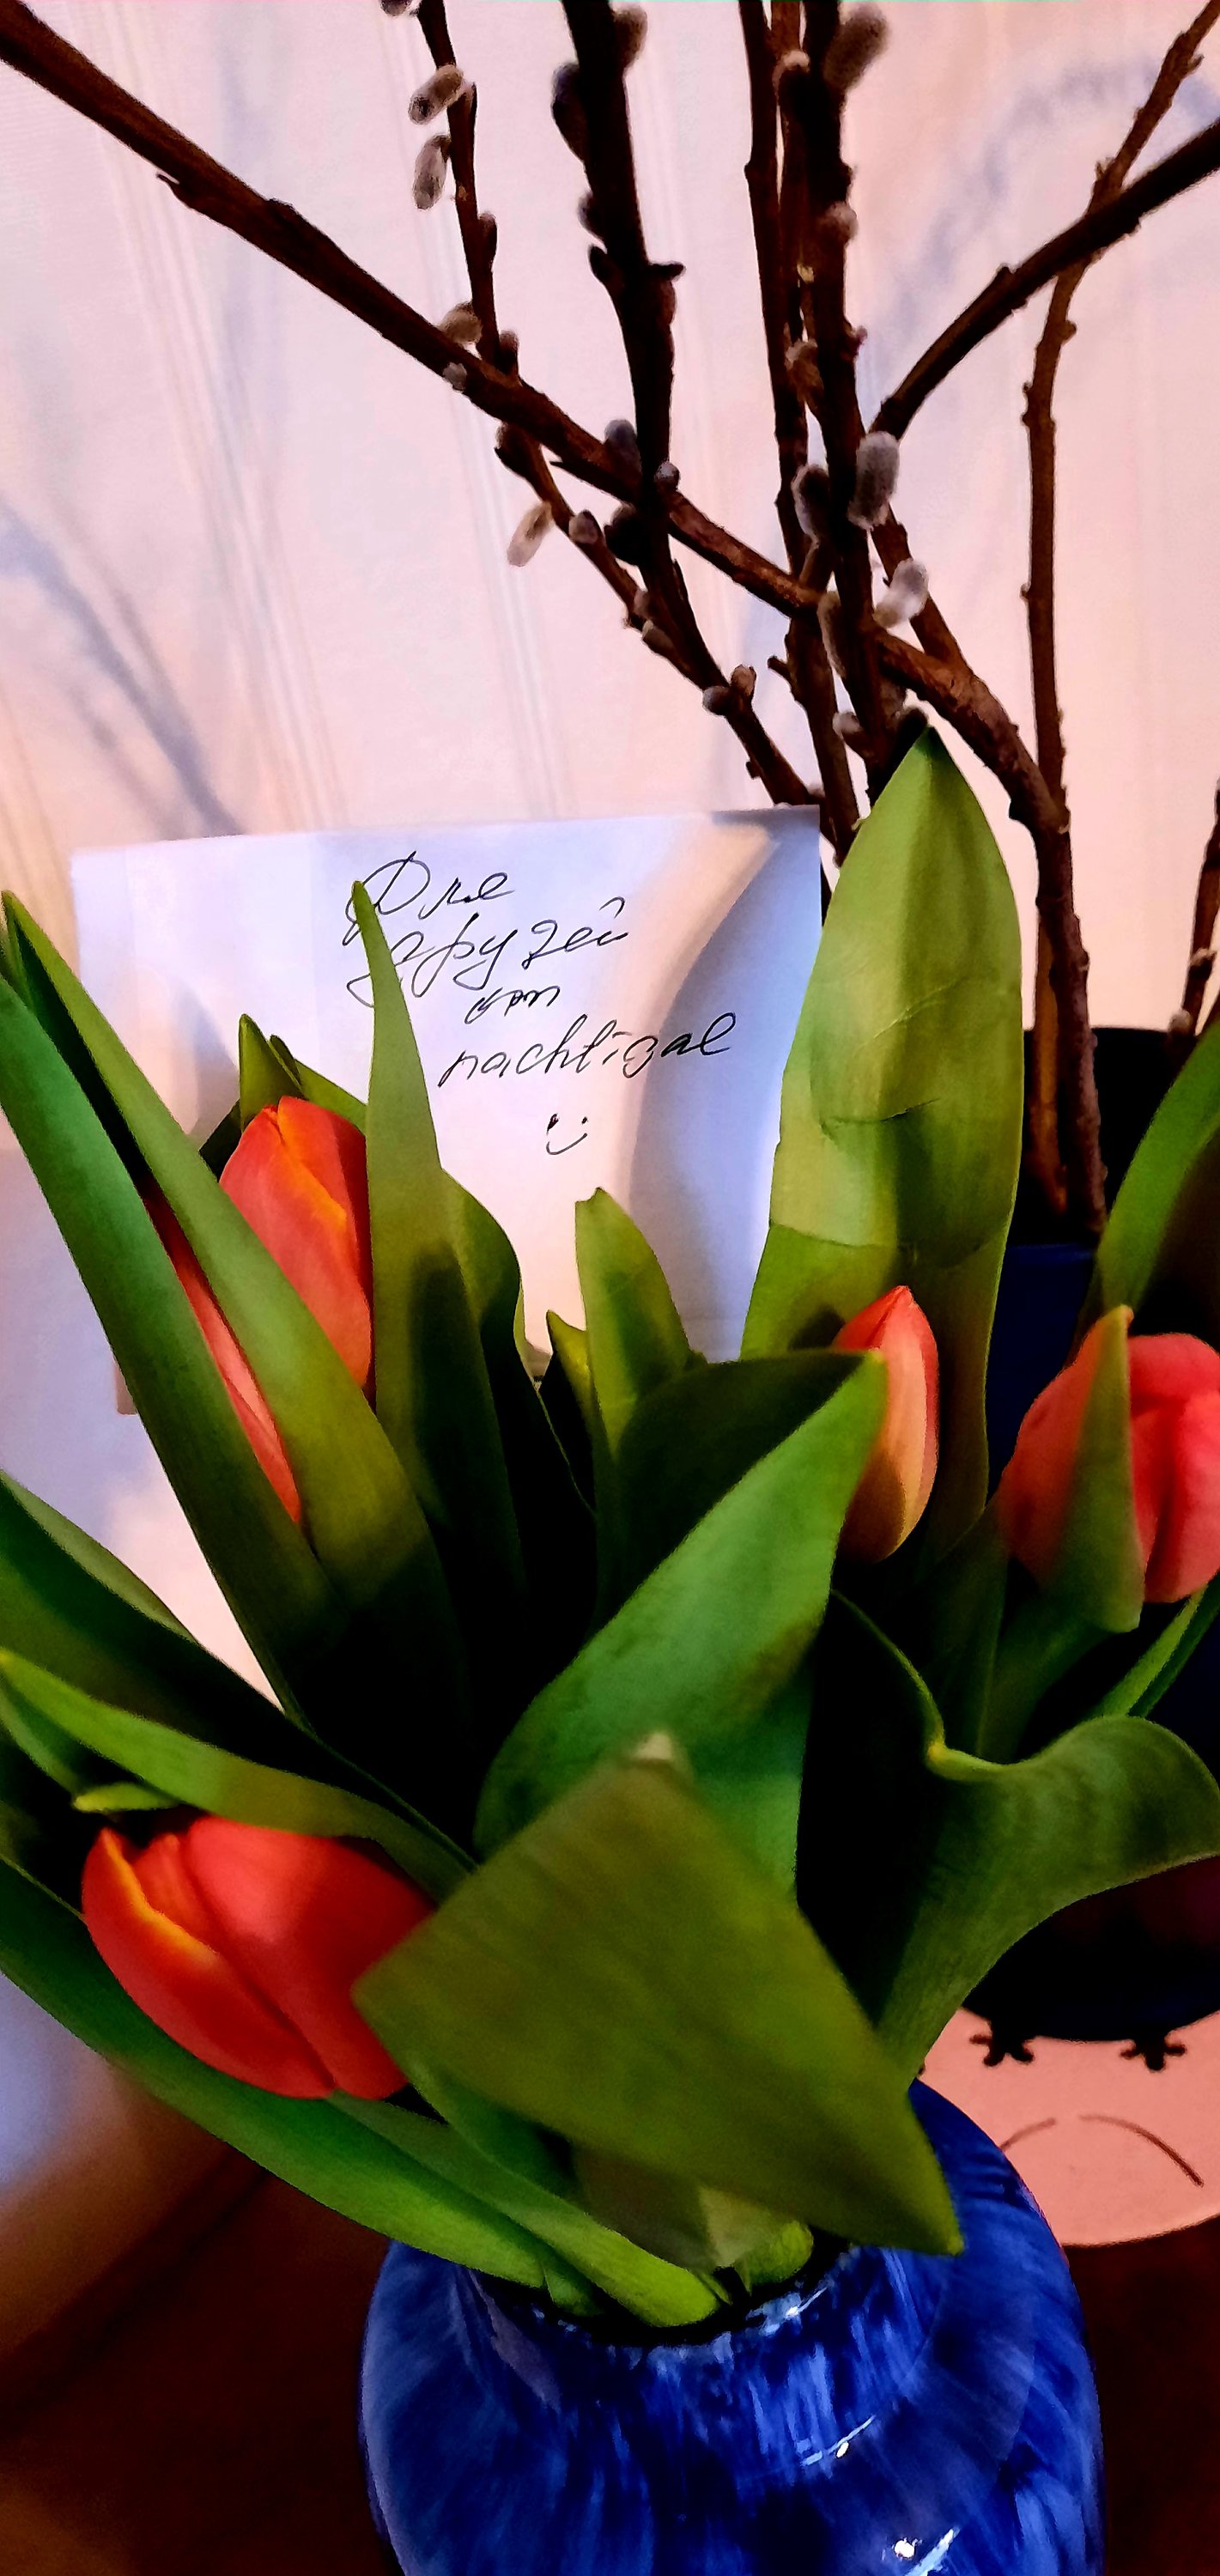 Для
друзей
от
nachtigal
:)